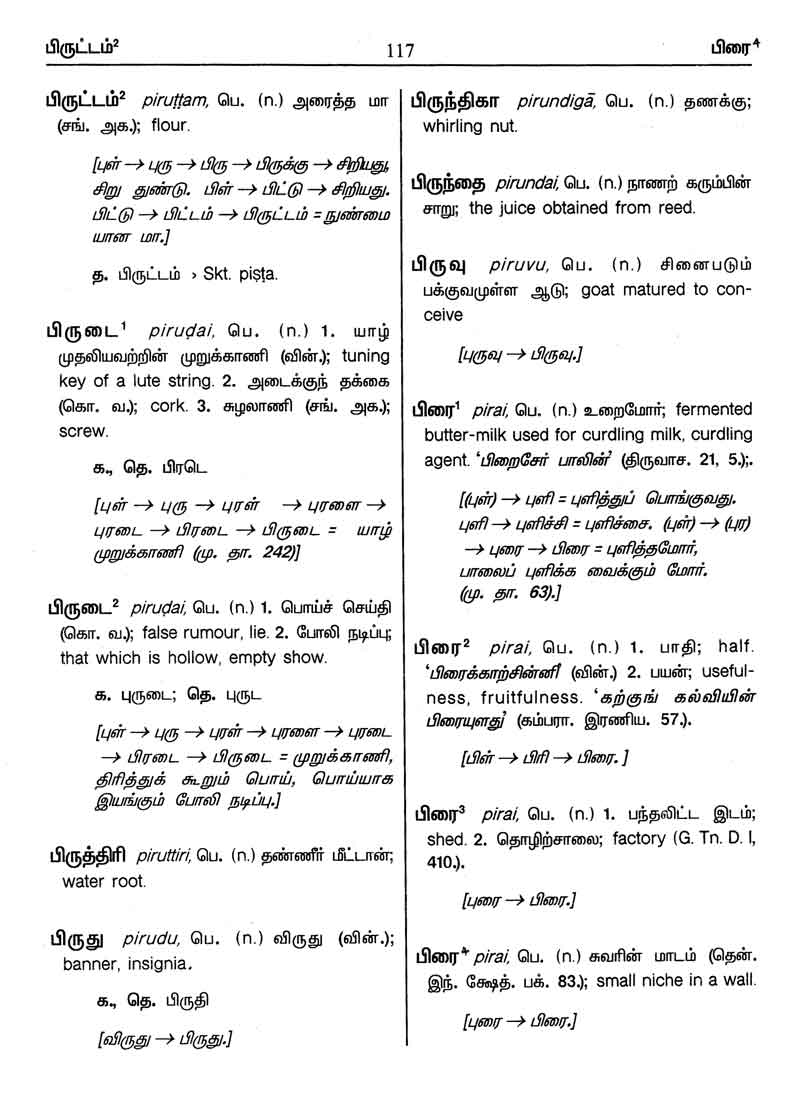 பிருட்டம்²
117
பிரை⁴
பிருட்டம்² piruṭṭam, பெ. (n.) அரைத்த மா
(சங். அக.); flour.
[புள் → புரு → பிரு → பிருக்கு → சிறியது,
சிறு துண்டு. பிள் → பிட்டு → சிறியது.
பிட்டு → பிட்டம் → பிருட்டம் = நுண்மை
யான மா.]
த. பிருட்டம் > Skt. piṣṭa.
பிருடை¹ piruḍai, பெ. (n.) 1. யாழ்
முதலியவற்றின் முறுக்காணி (வின்.); tuning
key of a lute string. 2. அடைக்குந் தக்கை
(கொ. வ.); cork. 3. சுழலாணி (சங். அக.);
screw.
க., தெ. பிரடெ
[புள் → புரு → புரள் → புரளை →
புரடை → பிரடை → பிருடை = யாழ்
முறுக்காணி (மு. தா. 242)]
பிருடை² piruḍai, பெ. (n.) 1. பொய்ச் செய்தி
(கொ. வ.); false rumour, lie. 2. போலி நடிப்பு;
that which is hollow, empty show.
க. புருடை; தெ. புருட
[புள் → புரு → புரள் → புரளை → புரடை
→ பிரடை → பிருடை = முறுக்காணி,
திரித்துக் கூறும் பொய், பொய்யாக
இயங்கும் போலி நடிப்பு.]
பிருத்திரி piruttiri, பெ. (n.) தண்ணீர் மீட்டான்;
water root.
பிருது pirudu, பெ. (n.) விருது (வின்.);
banner, insignia.
க., தெ. பிருதி
[விருது → பிருது.]
பிருந்திகா pirundigā, பெ. (n.) தணக்கு;
whirling nut.
பிருந்தை pirundai, பெ. (n.) நாணற் கரும்பின்
சாறு; the juice obtained from reed.
பிருவு piruvu, பெ. (n.) சினைபடும்
பக்குவமுள்ள ஆடு; goat matured to con-
ceive
[புருவு → பிருவு.]
பிரை¹ pirai, பெ. (n.) உறைமோர்; fermented
butter-milk used for curdling milk, curdling
agent. ‘பிறைசேர் பாலின்’ (திருவாச. 21, 5.);.
[(புள்) → புளி = புளித்துப் பொங்குவது.
புளி → புளிச்சி = புளிச்சை. (புள்) → (புர)
→ புரை → பிரை = புளித்தமோர்,
பாலைப் புளிக்க வைக்கும் மோர்.
(மு. தா. 63).]
பிரை² pirai, பெ. (n.) 1. பாதி; half.
‘பிரைக்காற்சின்னி’ (வின்.) 2. பயன்; useful-
ness, fruitfulness. ‘கற்குங் கல்வியின்
பிரையுளது’ (கம்பரா. இரணிய. 57.).
[பிள் → பிரி → பிரை. ]
பிரை³ pirai, பெ. (n.) 1. பந்தலிட்ட இடம்;
shed. 2. தொழிற்சாலை; factory (G. Tn. D. I,
410.).
[புரை → பிரை.]
பிரை⁴ pirai, பெ. (n.) சுவரின் மாடம் (தென்.
இந். க்ஷேத். பக். 83.); small niche in a wall.
[புரை → பிரை.]